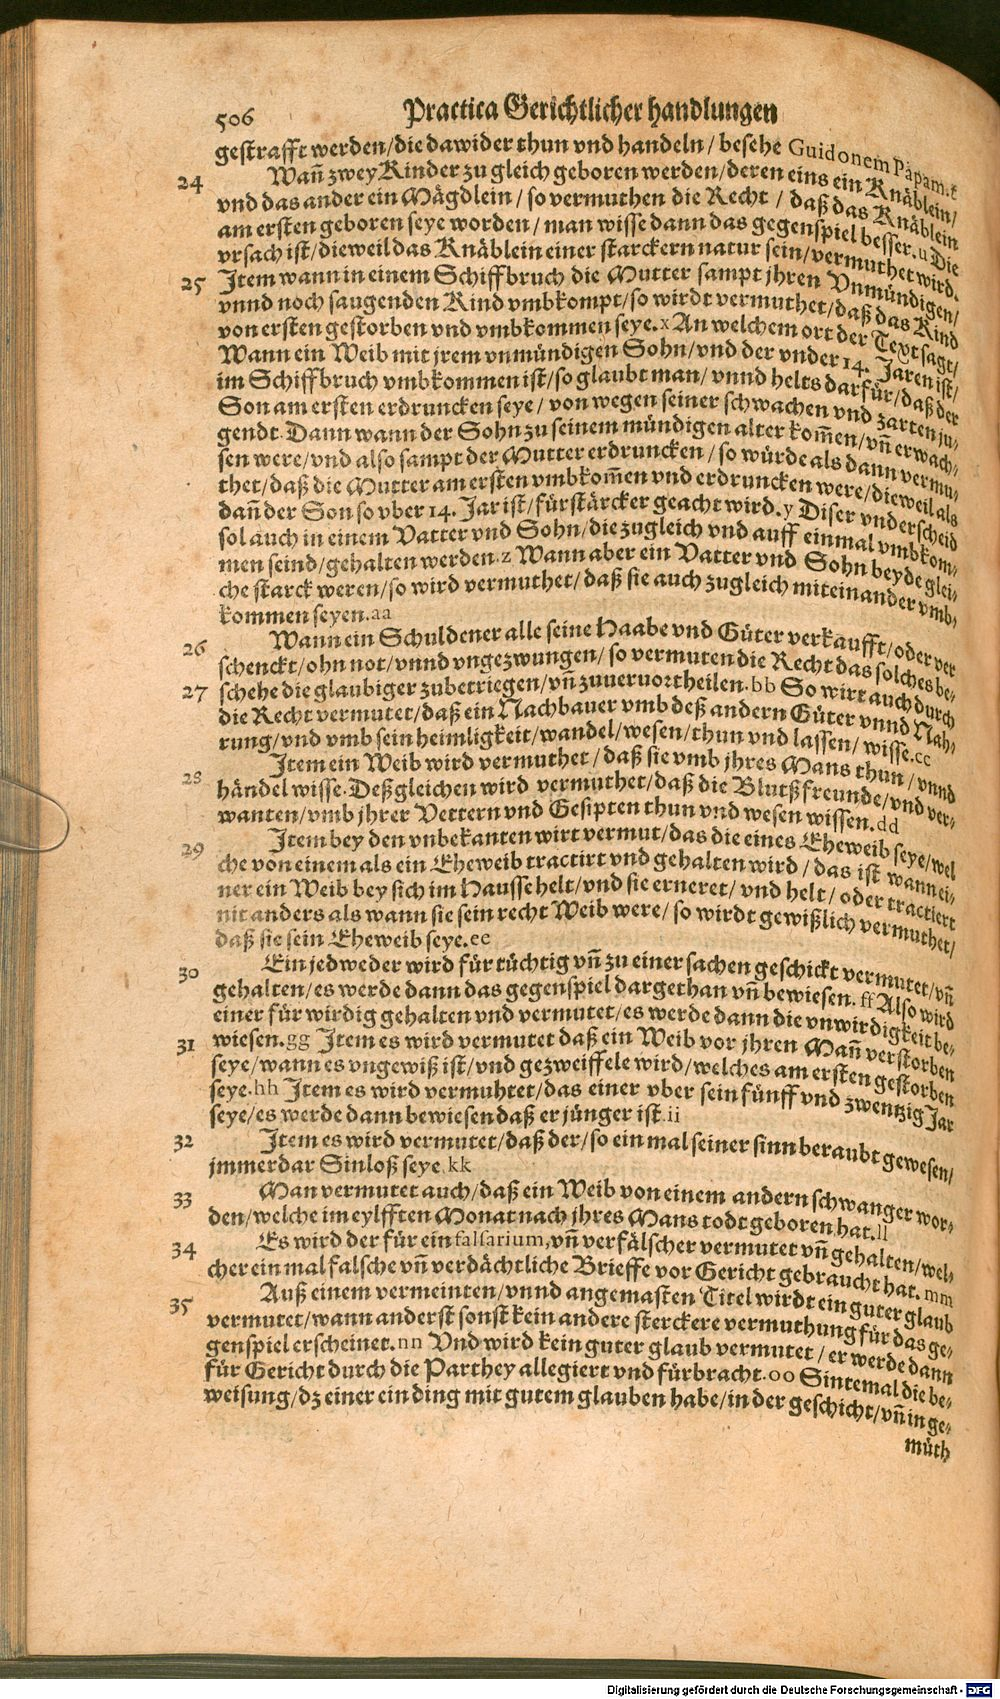 506 Practica Gerichtlicher handlungen
gestrafft werden/die dawider thun vnd handeln/ besehe Guidonem Papam.t
24 Wañ zwey Kinder zu gleich geboren werden/deren eins ein Knäblein/
vnd das ander ein Mägdlein/ so vermuthen die Recht / daß das Knäblein
am ersten geboren seye worden/ man wisse dann das gegenspiel besser.u Die
vrsach ist/dieweil das Knäblein einer starckern natur sein/vermuthet wird.
25 Item wann in einem Schiffbruch die Mutter sampt jhren Vnmündigen/
vnnd noch saugenden Kind vmbkompt/so wirdt vermuthet/daß das Kind
von ersten gestorben vnd vmbkommen seye.x An welchem ort der Text sagt/
Wann ein Weib mit jrem vnmündigen Sohn/vnd der vnder 14. Jaren ist/
im Schiffbruch vmbkommen ist/so glaubt man/ vnnd helts darfür/daß der
Son am ersten erdruncken seye/ von wegen seiner schwachen vnd zarten ju-
gendt. Dann wann der Sohn zu seinem mündigen alter kom̃en/vñ erwach-
sen were/vnd also sampt der Mutter erdruncken/so würde als dann vermu-
thet/daß die Mutter am ersten vmbkom̃en vnd erdruncken were/dieweil als
dañ der Son so vber 14. Jar ist/fürstärcker geacht wird.y Diser vnderscheid
sol auch in einem Vatter vnd Sohn/die zugleich vnd auff einmal vmbkom-
men seind/gehalten werden.z Wann aber ein Vatter vnd Sohn beyde glei-
che starck weren/so wird vermuthet/daß sie auch zugleich miteinander vmb-
kommen seyen.aa
26 Wann ein Schuldener alle seine Haabe vnd Güter verkaufft/oder ver
schenckt/ohn not/vnnd vngezwungen/so vermuten die Recht das solches be-
27 schehe die glaubiger zubetriegen/vñ zuuervortheilen.bb So wirt auch durch
die Recht vermutet/daß ein Nachbauer vmb deß andern Güter vnnd Nah-
rung/vnd vmb sein heimligkeit/wandel/wesen/thun vnd lassen/ wisse.cc
28 Item ein Weib wird vermuthet/daß sie vmb jhres Mans thun/vnnd
händel wisse. Deßgleichen wird vermuthet/daß die Blutßfreunde/vnd ver-
wanten/vmb jhrer Vettern vnd Gesipten thun vnd wesen wissen.dd
29 Item bey den vnbekanten wirt vermut/das die eines Eheweib seye/wel
che von einem als ein Eheweib tractirt vnd gehalten wird/das ist wann ei-
ner ein Weib bey sich im Hausse helt/vnd sie erneret/ vnd helt/ oder tractiert
nit anders als wann sie sein recht Weib were/ so wirdt gewißlich vermuthet/
daß sie sein Eheweib seye.ee
30 Ein jedweder wird für tüchtig vñ zu einer sachen geschickt vermutet/vñ
gehalten/es werde dann das gegenspiel dargethan vñ bewiesen. ff Also wird
einer für wirdig gehalten vnd vermutet/es werde dann die vnwirdigkeit be-
31 wiesen.gg Item es wird vermutet daß ein Weib vor jhren Mañ verstorben
seye/wann es vngewiß ist/vnd gezweiffele wird/welches am ersten gestorben
seye.hh Item es wird vermuhtet/das einer vber sein fünff vnd zwentzig Jar
seye/es werde dann bewiesen daß er jünger ist.ii
32 Item es wird vermutet/daß der/so ein mal seiner sinn beraubt gewesen/
jmmerdar Sinloß seye.kk
33 Man vermutet auch/daß ein Weib von einem andern schwanger wor-
den/welche im eylfften Monat nach jhres Mans todt geboren hat.ll
34 Es wird der für ein falsarium,vñ verfälscher vermutet vñ gehalten/wel-
cher ein mal falsche vñ verdächtliche Brieffe vor Gericht gebraucht hat.mm
35 Auß einem vermeinten/vnnd angemasten Titel wirdt ein guter glaub
vermutet/wann anderst sonst kein andere sterckere vermuthung für das ge-
genspiel erscheinet.nn Vnd wird kein guter glaub vermutet/er werde dann
für Gericht durch die Parthey allegiert vnd fürbracht.oo Sintemal die be-
weisung/dz einer ein ding mit gutem glauben habe/in der geschicht/vñ in ge-
müth
Digitalisierung gefördert durch die Deutsche Forschungsgemeinschaft - DFG